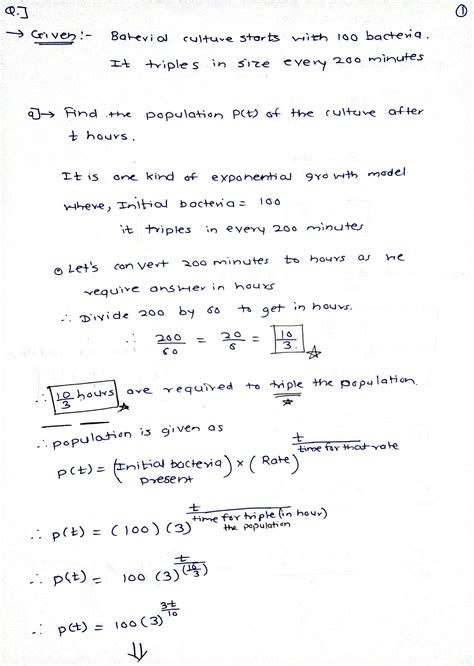 Q.] ①
→ Given:- Baterial culture starts with 100 bacteria.
It triples in size every 200 minutes
a]→ Find the population P(t) of the culture after
t hours.
It is one kind of exponential growth model
where, Initial bacteria = 100
it triples in every 200 minutes
⊙ Let's convert 200 minutes to hours as we
require answer in hours
∴ Divide 200 by 60 to get in hours.
∴ 200/60 = 20/6 = 10/3 ☆
∴ 10/3 hours are required to triple the population.
∴ population is given as
p(t) = (Initial bacteria present) × (Rate)^(t/time for that rate)
∴ p(t) = (100) (3)^(t/time for triple (in hour) the population)
∴ p(t) = 100 (3)^(t/(10/3))
∴ p(t) = 100 (3)^(3t/10)
⇓